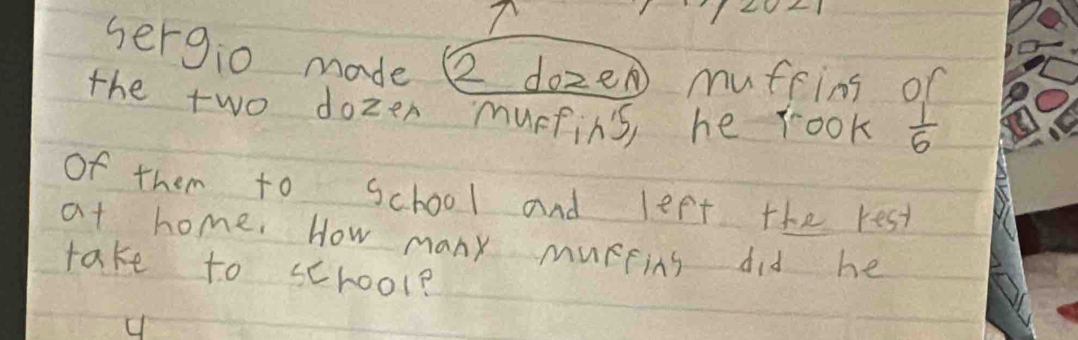 /2021
Sergio made 2 dozen muffins of
the two dozen muffins, he took 1/6
Of them to school and left the rest
at home. How many muffins did he
take to school?
4